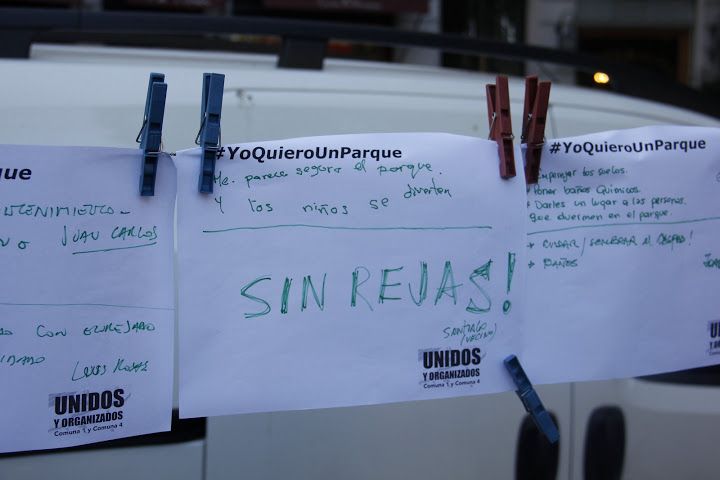 ue
TENIMIENTO -
NO JUAN CARLOS
DO CON ENREJADO
IDADO
UNIDOS
Y ORGANIZADOS
Comuna 1 y Comuna 4
#YoQuieroUnParque
Me. parece seguro el parque.
Y los niños se divierten
SIN REJAS!
SANTIAGO
(VECINO)
UNIDOS
Y ORGANIZADOS
Comuna 1 y Comuna 4
#YoQuieroUnParque
Emparejar los suelos.
Poner baños Químicos.
* Darles un lugar a las personas.
que duermen en el parque.
* CUIDAR/SEMBRAR EL CESPED!
* BAÑOS
UNIDOS
Y ORGANIZADOS
Comuna 1 y Comuna 4